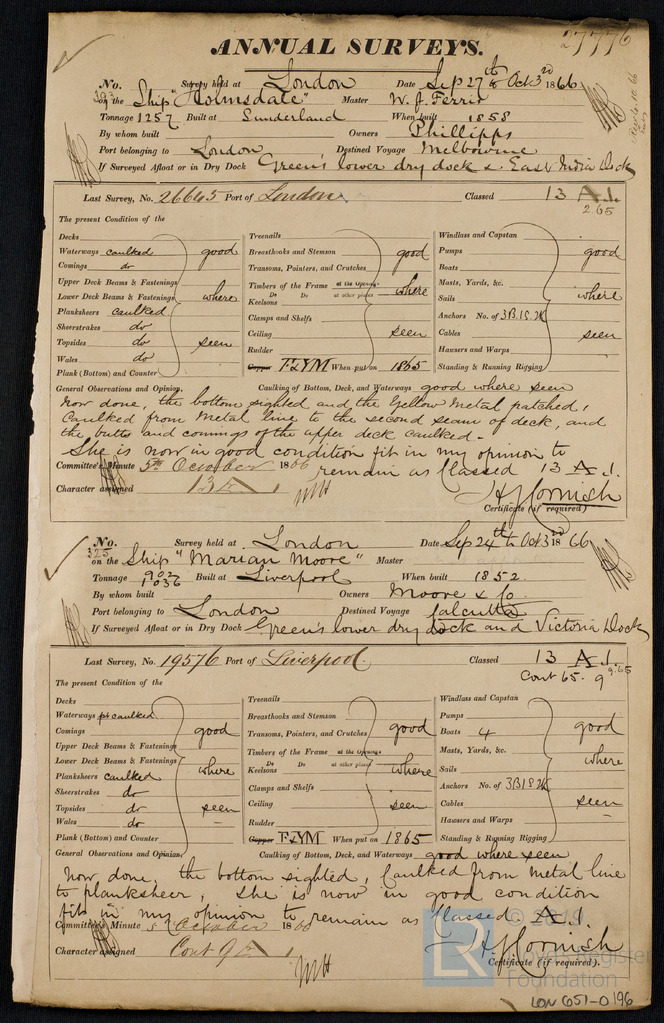 27776
ANNUAL SURVEYS.
No. 323 Survey held at London Date Sep 27th & Oct 3rd 1866
on the Ship "Holmsdale" Master W. J. Ferris
Tonnage 1257 Built at Sunderland When built 1858
By whom built Owners Phillipps
Port belonging to London Destined Voyage Melbourne
If Surveyed Afloat or in Dry Dock Green's lower dry dock & East India Dock
Last Survey, No. 26645 Port of London Classed 13 A.1.
2 65
The present Condition of the
Decks
Waterways caulked
Comings do
Upper Deck Beams & Fastenings
Lower Deck Beams & Fastenings
Planksheers caulked
Sheerstrakes do
Topsides do
Wales do
Plank (Bottom) and Counter
good
where
seen
Treenails
Breasthooks and Stemson
Transoms, Pointers, and Crutches
Timbers of the Frame at the Openings
Keelsons Do Do at other places
Clamps and Shelfs
Ceiling
Rudder
Copper F&YM When put on 1865
good
where
seen
Windlass and Capstan
Pumps
Boats
Masts, Yards, &c.
Sails
Anchors No. of 3B 1S 2K
Cables
Hausers and Warps
Standing & Running Rigging
good
where
seen
General Observations and Opinion, Caulking of Bottom, Deck, and Waterways good where seen
now done, the bottom sighted and the Yellow Metal patched,
Caulked from Metal line to the second seam of deck, and
the butts and comings of the upper deck caulked -
She is now in good condition fit in my opinion to
Committee's Minute 5th October 1866 remain as Classed 13 A.1.
Character assigned 13 A 1
H J Cornish
Certificate (if required)
No. 325 Survey held at London Date Sep 24th to Oct 3rd 1866
on the Ship "Marian Moore" Master
Tonnage 902 1036 Built at Liverpool When built 1852
By whom built Owners Moore & Co
Port belonging to London Destined Voyage Calcutta
If Surveyed Afloat or in Dry Dock Green's lower dry dock and Victoria Dock
Last Survey, No. 19576 Port of Liverpool. Classed 13 A.1.
Cont 65. 9 9.65
The present Condition of the
Decks
Waterways pt caulked
Comings
Upper Deck Beams & Fastenings
Lower Deck Beams & Fastenings
Planksheers caulked
Sheerstrakes do
Topsides do
Wales do
Plank (Bottom) and Counter
good
where
seen
Treenails
Breasthooks and Stemson
Transoms, Pointers, and Crutches
Timbers of the Frame at the Openings
Keelsons Do Do at other places
Clamps and Shelfs
Ceiling
Rudder
Copper F&YM When put on 1865
good
where
seen
Windlass and Capstan
Pumps
Boats 4
Masts, Yards, &c.
Sails
Anchors No. of 3B 1S 2K
Cables
Hausers and Warps
Standing & Running Rigging
good
where
seen
General Observations and Opinion, Caulking of Bottom, Deck, and Waterways good where seen
now done, the bottom sighted, Caulked from Metal line
to planksheer, She is now in good condition
fit in my opinion to remain as Classed A.1.
Committee's Minute 5 October 1866
Character assigned Cont 9 A 1
H J Cornish
Certificate (if required).
LR © 2019
Lloyd's Register
Foundation
LON 651-0196